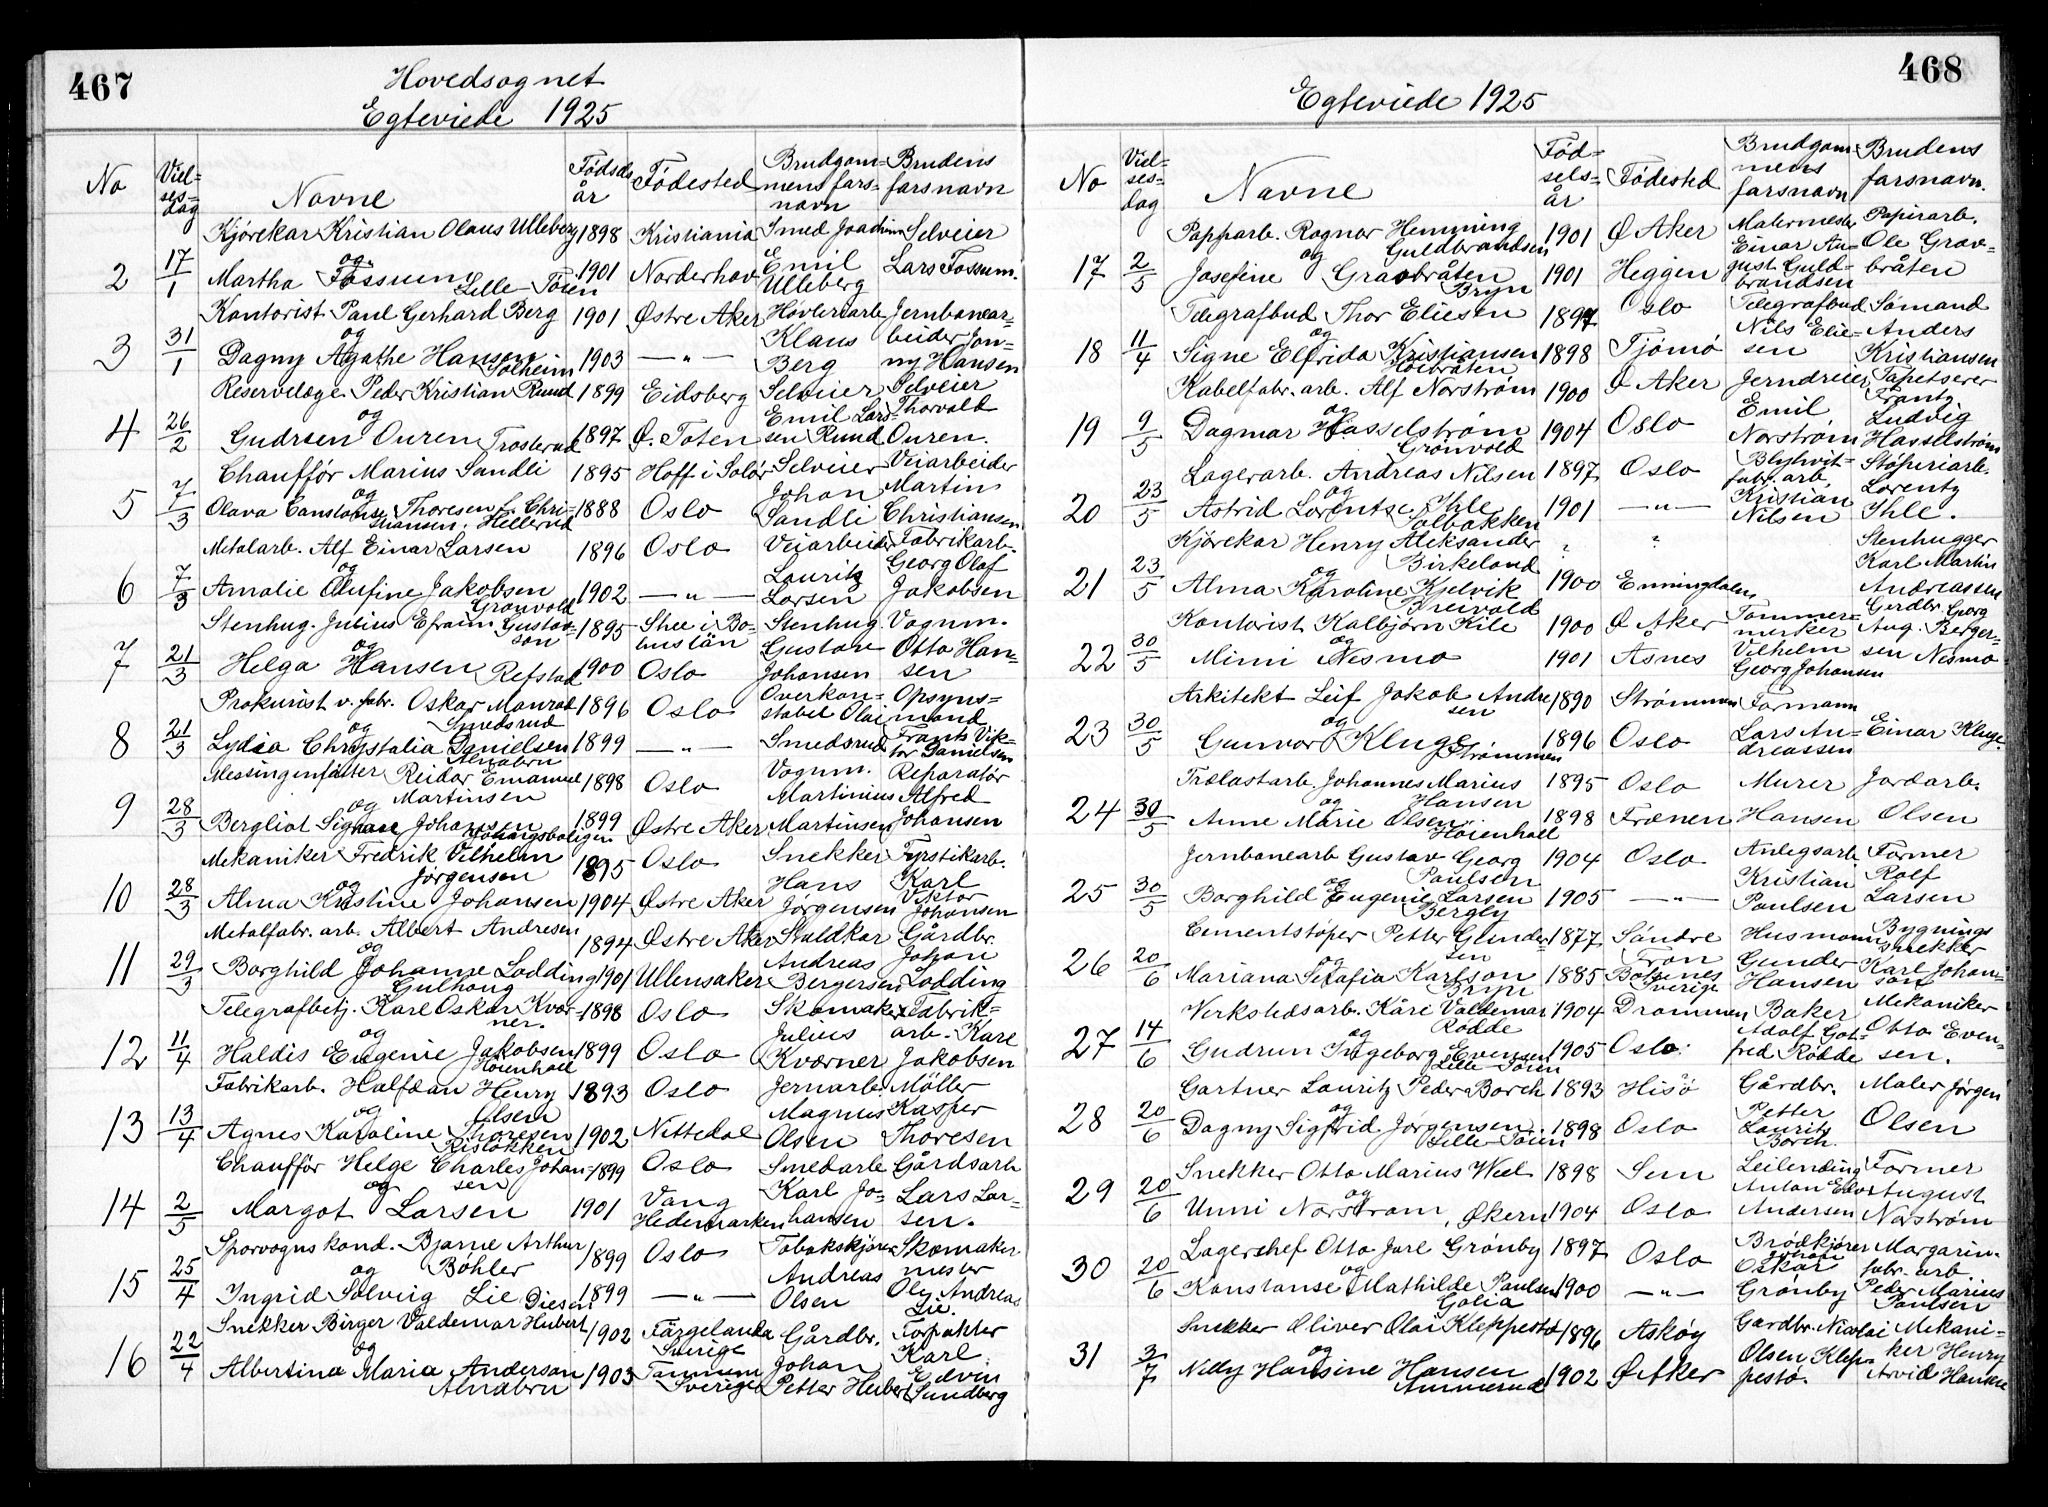 467
Hovedsognet
Egteviede 1925
No Viel-sesdag Navne Fødselsår Fødested Brudgommens farsnavn Brudens farsnavn
Kjørekar Kristian Olaus Ulleberg 1898 Kristiania Smed Joachim Selveier
2 17/1 og Emil Lars Fossum.
Martha Fossum Lille Tøien 1901 Norderhov Ulleberg
Kontorist Paul Gerhard Berg 1901 Østre Aker Høvleriarb. Jernbanear-
3 31/1 og Klaus beider Jon-
Dagny Agathe Hansen Solheim 1903 — " — Berg ny Hansen
Reservelæge Peder Kristian Ruud 1899 Eidsberg Selveier Selveier
4 26/2 og Emil Lars- Thorvald
Gudrun Ouren Trosterud 1897 Ø. Toten sen Ruud Ouren.
Chauffør Marius Sandli 1895 Hoff i Solør Selveier Veiarbeider
5 7/3 og Johan Martin
Olava Constanse Thoresen f. Chri- 1888 Oslo Sandli Christiansen
stiansen. Hellerud
Metalarb. Alf Einar Larsen 1896 Oslo Veiarbeider Fabrikarb.
6 7/3 og Lauritz Georg Olaf
Amalie Olufine Jakobsen 1902 — " — Larsen Jakobsen
Grønvold
Stenhug. Julius Efraim Gustav- 1895 Stenhug. Vognm.
son hustän
7 21/3 og Gustav Otto Han-
Helga Hansen Refstad 1900 Oslo Johansen sen
Prokurist v. fabr. Oskar Monrad 1896 Oslo Overkon- Opsyns-
8 21/3 og Smedsrud stabel Olai mand
Lydia Chrystalia Danielsen 1899 — " — Smedsrud Frants Vik-
Alnabru tor Danielsen
Messingenfatter Reidar Emanuel 1898 Oslo Vognm. Reparatør
Martinsen Martinius Alfred
9 28/3 og
Bergliot Signora Johansen 1899 Østre Aker Martinsen Johansen
Mekaniker Fredrik Vilhelm 1895 Oslo Snekker Fyrstikarb.
Jørgensen Hans Karl
10 28/3 og Viktor
Alma Kristine Johansen 1904 Østre Aker Jørgensen Johansen
Metalfabr. arb. Albert Andresen 1894 Østre Aker Staldkar Gårdbr.
11 29/3 og Andreas Johan
Borghild Johanne Lodding 1901 Ullensaker Bergersen Lodding
Gulhaug
Telegrafbetj. Karl Oskar Kvær- 1898 Oslo Skomaker Fabrik-
ner.
12 11/4 og Julius arb. Karl
Haldis Eugenie Jakobsen 1899 Oslo Kværner Jakobsen
Høienhall
Fabrikarb. Halfdan Henry 1893 Oslo Jernarb. Møller
Olsen Magnus Kasper
13 13/4 og
Agnes Karoline Thoresen 1902 Nittedal Olsen Thoresen
Risløkken
Chauffør Helge Charles Johan- 1899 Oslo Smedarb. Gårdsarb
sen
14 2/5 og Karl Jo- Lars Lar-
Margot Larsen 1901 Vang hansen sen.
Hedemarken
Sporvognskond. Bjarne Arthur 1899 Oslo Tobakskjører Skomaker-
Bøhler Andreas mester
15 25/4 og
Ingrid Solveig Lie Diesen 1899 — " — Olsen Ole Andreas
Lie.
Snekker Birger Valdemar Hubert 1902 Färgelanda Gårdbr. Forpakter
Sverige
16 22/4 og Johan Karl
Albertina Maria Anderson 1903 Tanum Petter Hubert Edvin
Alnabru Sverige Sundberg
468
Egteviede 1925
No Viel-ses-dag Navne Fød-sels-år Fødested Brudgommens farsnavn Brudens farsnavn.
Papparb. Ragnar Hemming 1901 Ø Aker Malermester Papirarb.
Guldbrandsen Einar Au- Ole Grav-
17 2/5 og
Josefine Gravbråten 1901 Heggen gust Guld- bråten
Bryn brandsen
Telegrafbud Thor Eliesen 1897 Oslo Telegrafbud Sømand
18 11/4 og Nils Elie- Anders
Signe Elfrida Kristiansen 1898 Tjømø sen Kristiansen
Høibråten
Kabelfabr. arb. Alf Norstrøm 1900 Ø Aker Jerndreier Tapetserer
19 9/5 og Emil Frantz Ludvig
Dagmar Hasselstrøm 1904 Oslo Norstrøm Hasselstrøm
Grønvold
Lagerarb. Andreas Nilsen 1897 Oslo Blyhvit- Støperiarb.
20 23/5 og fabr. arb. Lorentz
Astrid Lorentze Ihle 1901 — " — Kristian Ihle.
Solbakken Nilsen
Kjørekar Henry Aleksander ? ? Stenhugger
Birkeland Karl Martin
21 23/5 og
Alma Karoline Kjelvik 1900 Enningdalen Andreassen
Breivold
Kontorist Kolbjørn Kile 1900 Ø Aker Tømmer- Gerdbr. Georg
22 30/5 og merker Aug. Berger-
Mimi Nesmo 1901 Åsnes Vilhelm sen Nesmo
Georg Johansen
Arkitekt Leif Jakob Andre 1890 Strømmen Formann
sen
23 30/5 og Lars An- Einar Kluge.
Gunvor Kluge 1896 Oslo dreassen
Strømmen
Trælastarb. Johannes Marius 1895 Oslo Murer Jordarb.
Hansen
24 30/5 og
Anne Marie Olsen 1898 Frænen Hansen Olsen
Høienhall
Jernbanearb Gustav Georg 1904 Oslo Anlegsarb. Former
Paulsen Kristian Rolf
25 30/5 og
Borghild Eugenie Larsen 1905 — " — Paulsen Larsen
Bergly
Cementstøper Petter Gunder- 1877 Søndre Husmann Bygnings
sen Fron snekker
26 20/6 og Gunder Karl Johan-
Mariana Serafia Karlson 1885 Hansen son
Bryn Sverige
Verkstedsarb. Kåre Valdemar 1904 Drammen Baker Mekaniker
Rødde
27 14/6 og Adolf Got- Otto Even-
Gudrun Ingeborg Evensen 1905 Oslo. fred Rødde sen.
Lille-Tøien
Gartner Lauritz Peder Borch 1893 Hisö Gårdbr. Maler Jørgen
28 20/6 og Petter
Dagny Sigfrid Jørgensen. 1898 Oslo Lauritz Olsen
Lille-Tøien Borch.
Snekker Otto Marius Weel 1898 Sem Leilending Former
29 20/6 og Anton Edv. August
Unni Norstrøm, Økern 1904 Oslo Andersen Norstrøm
Lagershef Otto Jarl Grønby 1897 Oslo Brødkjører Margarin-
30 20/6 og Johan Oskar fabr. arb
Konstanse Mathilde Paulsen 1900 — " — Grønby Peder Marius
Golia Paulsen
Snekker Oliver Olai Kleppestø 1896 Askøy Gardbr. Nicolai Mekani-
31 3/7 og Olsen Klep- ker Henry
Nelly Hansine Hansen 1902 Ø Aker pestø. Arvid Hansen
Ammerud